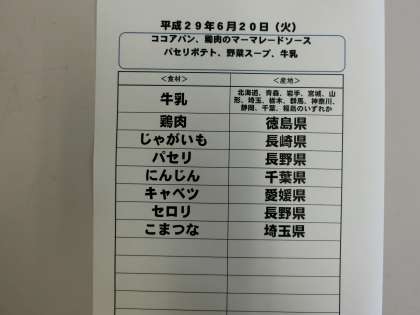 平成29年6月20日（火）
ココアパン、鶏肉のマーマレードソース
パセリポテト、野菜スープ、牛乳
＜食材＞ ＜産地＞
牛乳 北海道、青森、岩手、宮城、山
形、埼玉、栃木、群馬、神奈川、
静岡、千葉、福島のいずれか
鶏肉 徳島県
じゃがいも 長崎県
パセリ 長野県
にんじん 千葉県
キャベツ 愛媛県
セロリ 長野県
こまつな 埼玉県